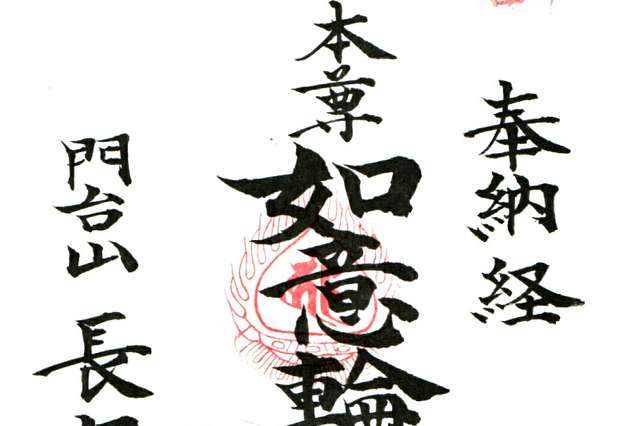 奉納経
本尊
如意輪
門台山 長